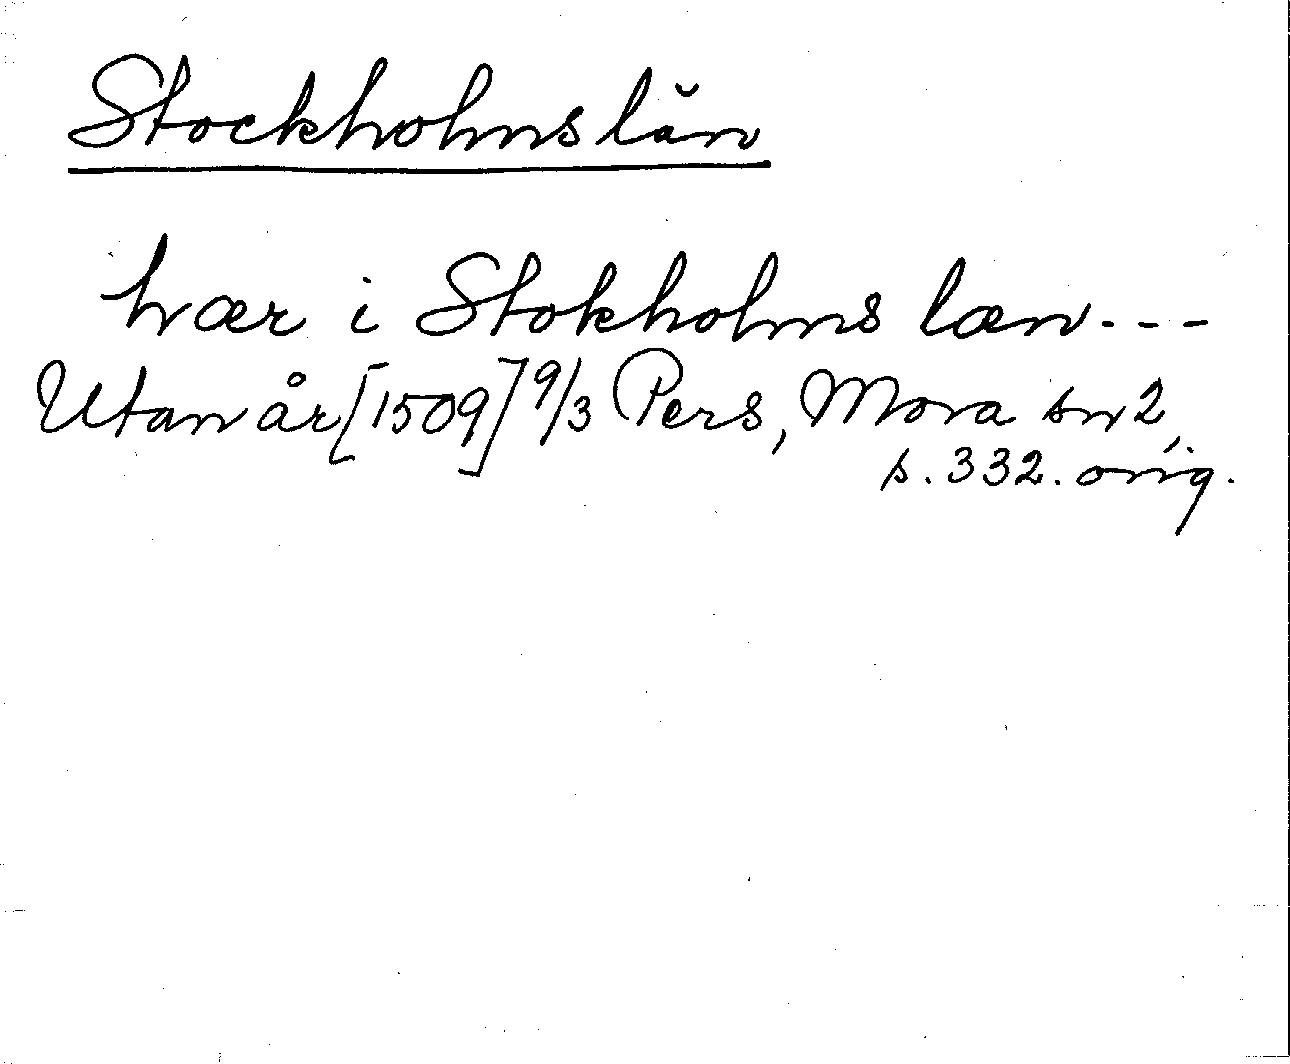 Stockholms län
hær i Stokholms læn---
Utan år [1509] 9/3 Pers, Mora sn 2,
s. 332. orig.